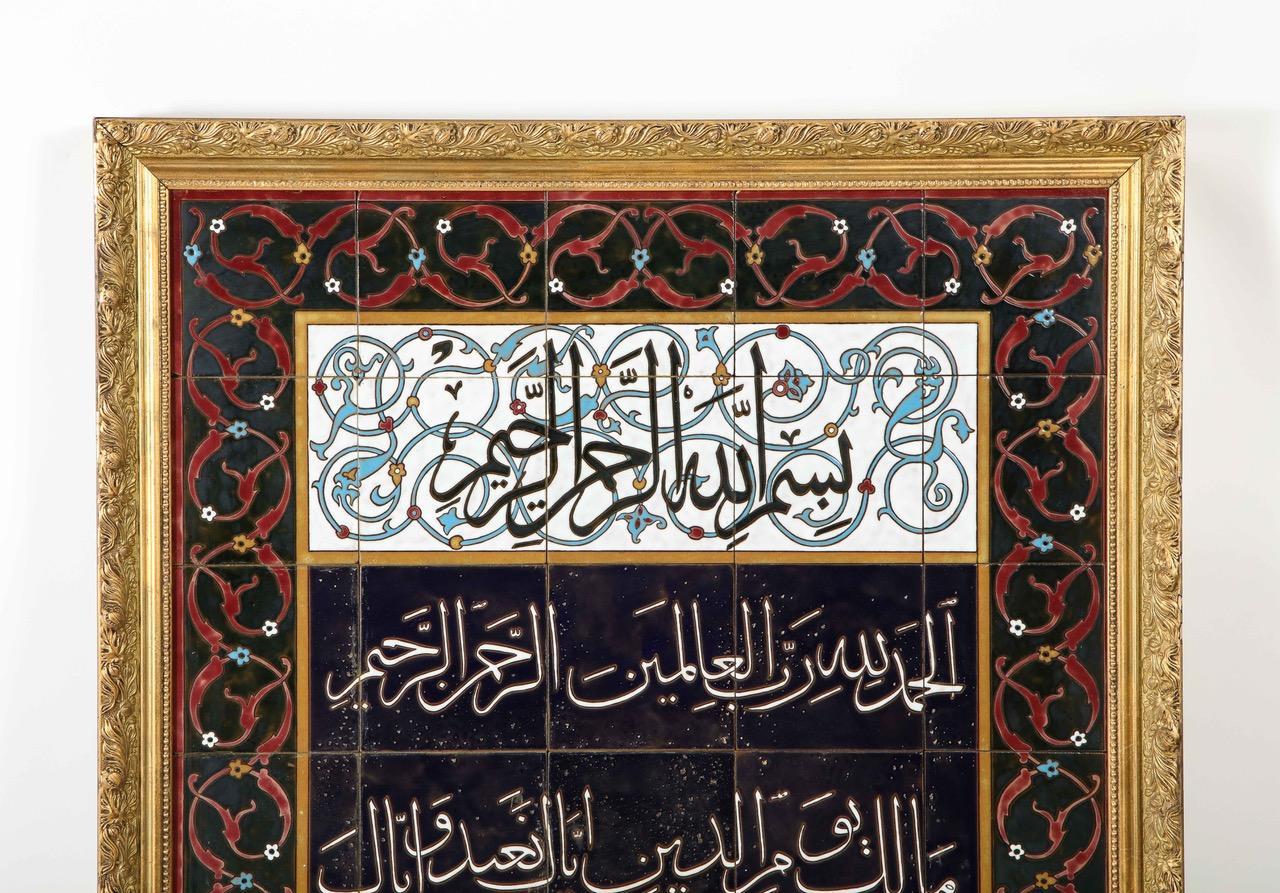 بِسمِ اللهِ الرَّحمنِ الرَّحِیمِ
اَلحَمدُ لِلهِ رَبِّ العالَمینَ الرَّحمنِ الرَّحیمِ
مالِكِ یَومِ الدینِ اِیّاكَ نَعبُدُ وَ اِیّاكَ